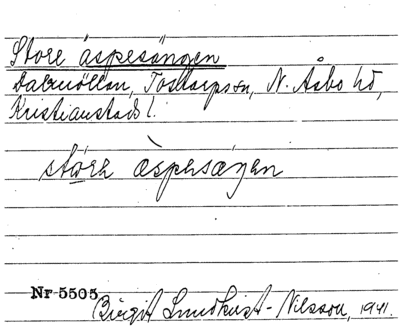 Store äspesängen
Dalamöllan, Tostarps sn, N. Åsbo hd,
Kristianstads l.
störe äspesængen
Nr 5505
Birgit Lundkvist-Nilsson, 1941.